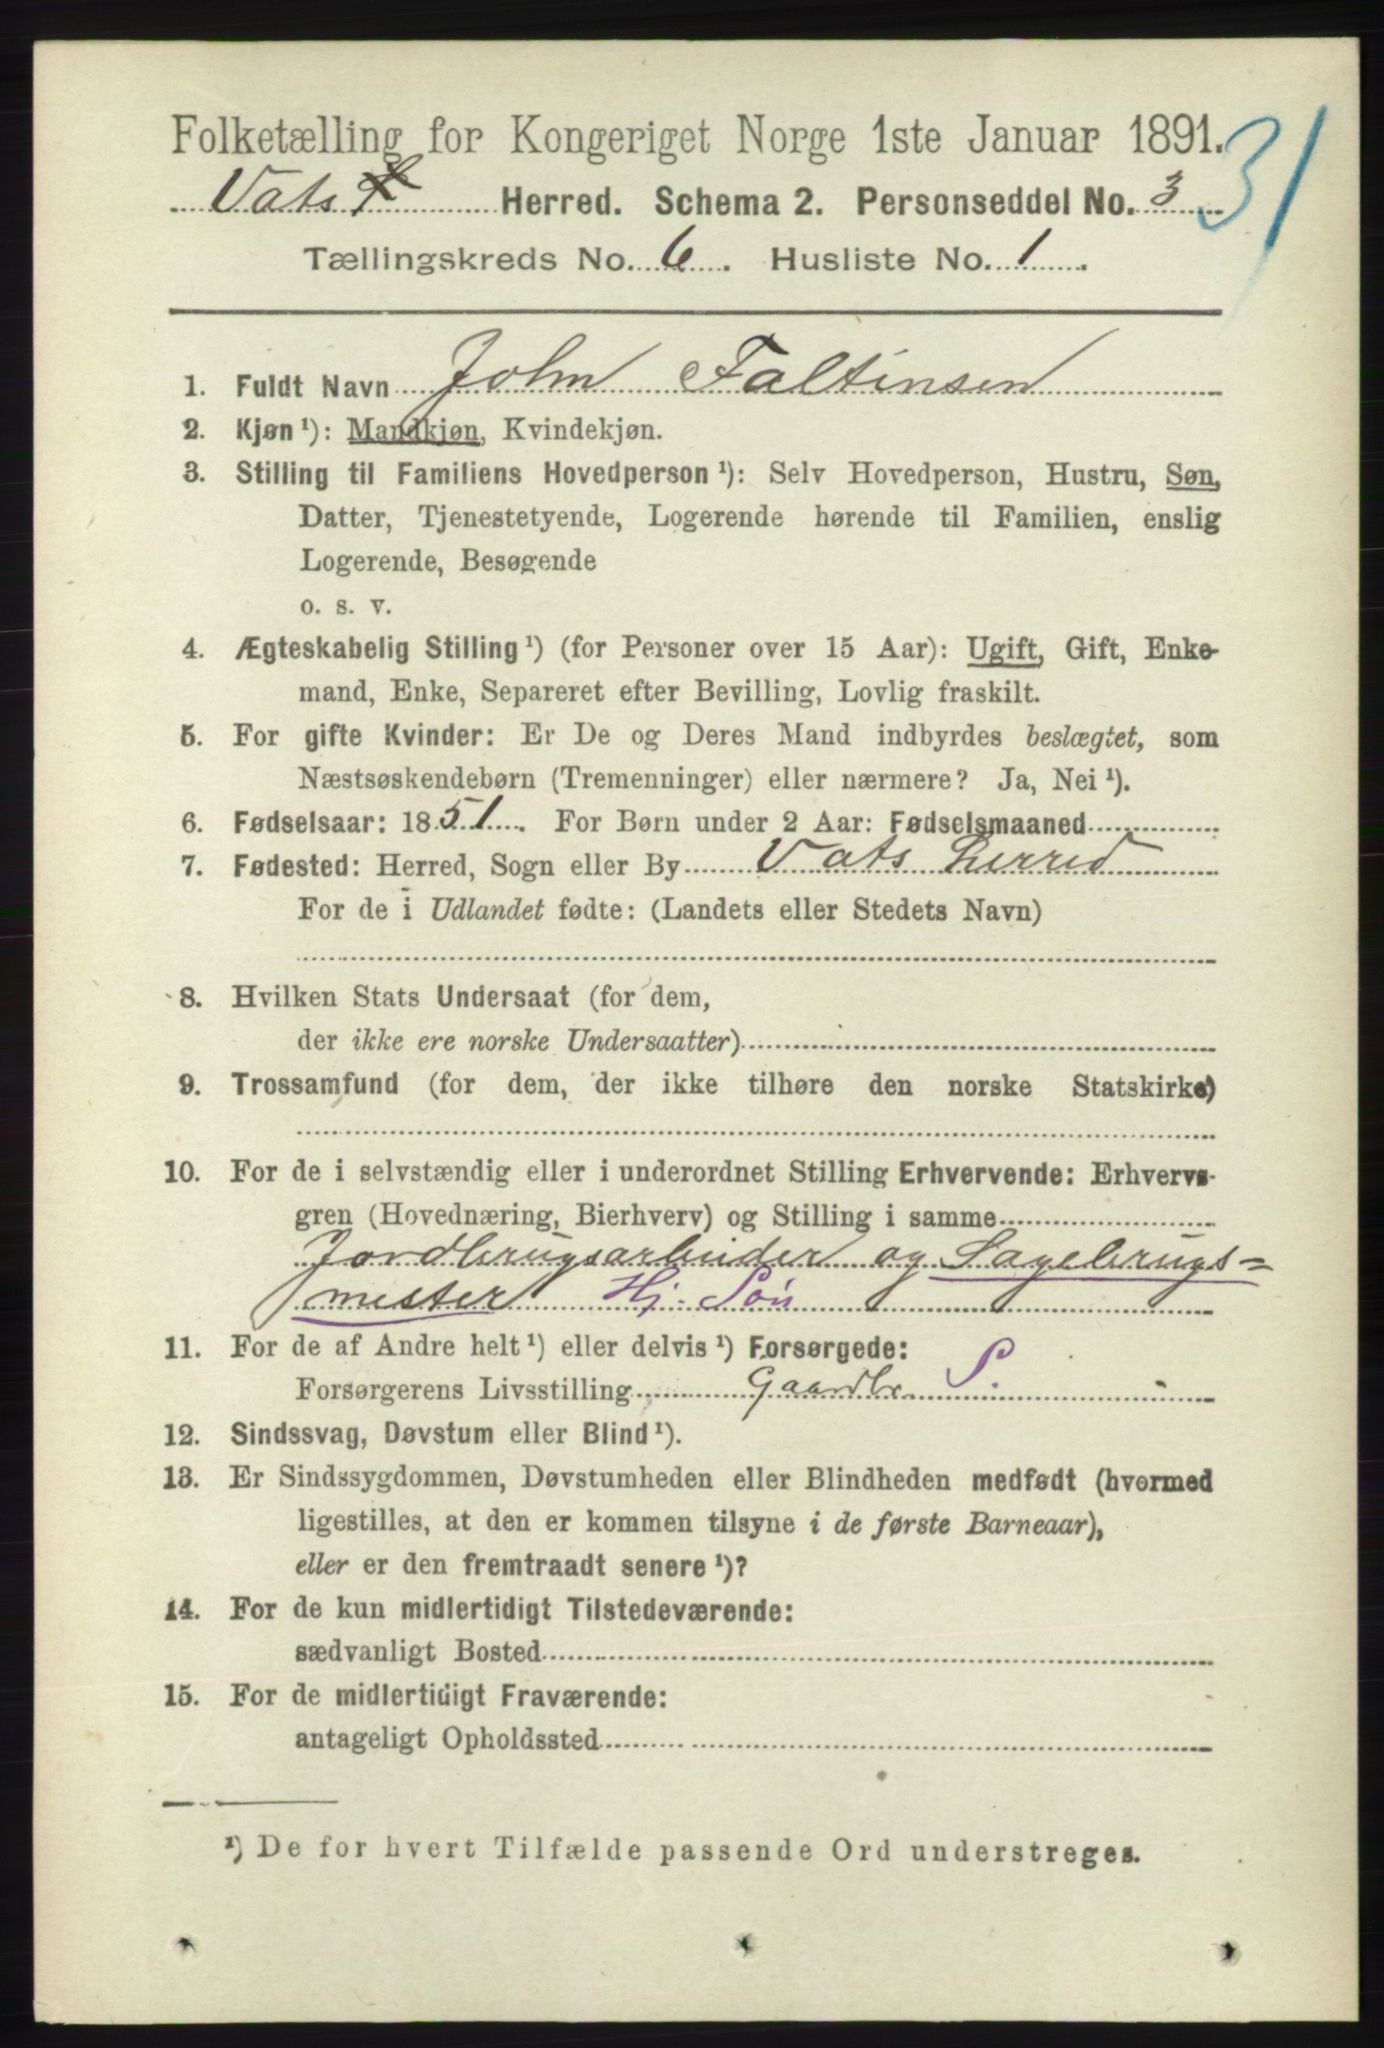 Folketælling for Kongeriget Norge 1ste Januar 1891.
31
Vats Herred. Schema 2. Personseddel No. 3
Tællingskreds No. 6. Husliste No. 1.
1. Fuldt Navn John Faltinsen
2. Kjøn ¹): Mandkjøn, Kvindekjøn.
3. Stilling til Familiens Hovedperson ¹): Selv Hovedperson, Hustru, Søn,
Datter, Tjenestetyende, Logerende hørende til Familien, enslig
Logerende, Besøgende
o. s. v.
4. Ægteskabelig Stilling ¹) (for Personer over 15 Aar): Ugift, Gift, Enke-
mand, Enke, Separeret efter Bevilling, Lovlig fraskilt.
5. For gifte Kvinder: Er De og Deres Mand indbyrdes beslægtet, som
Næstsøskendebørn (Tremenninger) eller nærmere? Ja, Nei ¹).
6. Fødselsaar: 1851. For Børn under 2 Aar: Fødselsmaaned
7. Fødested: Herred, Sogn eller By Vats herred
For de i Udlandet fødte: (Landets eller Stedets Navn)
8. Hvilken Stats Undersaat (for dem,
der ikke ere norske Undersaatter)
9. Trossamfund (for dem, der ikke tilhøre den norske Statskirke)
10. For de i selvstændig eller i underordnet Stilling Erhvervende: Erhvervs-
gren (Hovednæring, Bierhverv) og Stilling i samme
Jordbrugsarbeider og Sagebrugs=
mester Hj. Søn
11. For de af Andre helt ¹) eller delvis ¹) Forsørgede:
Forsørgerens Livsstilling Gaardbr. S.
12. Sindssvag, Døvstum eller Blind ¹).
13. Er Sindssygdommen, Døvstumheden eller Blindheden medfødt (hvormed
ligestilles, at den er kommen tilsyne i de første Barneaar),
eller er den fremtraadt senere ¹)?
14. For de kun midlertidigt Tilstedeværende:
sædvanligt Bosted
15. For de midlertidigt Fraværende:
antageligt Opholdssted
¹) De for hvert Tilfælde passende Ord understreges.